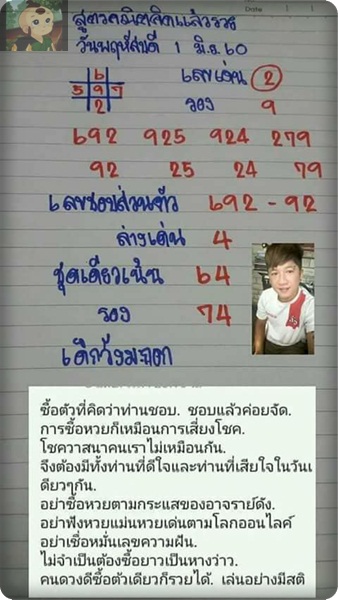 Date
สูตรคณิตคิดแล้วรวย
วันพฤหัสบดี 1 มิ.ย 60
6
5 9 7
2
เลขเด่น 2
รอง 9
692 925 924 279
92 25 24 79
เลขชอบส่วนตัว 692 - 92
ล่างเด่น 4
ชุดเดียวเน้น 64
รอง 74
เด็กวังมะนาว
ซื้อตัวที่คิดว่าท่านชอบ. ชอบแล้วค่อยจัด.
การซื้อหวยก็เหมือนการเสี่ยงโชค.
โชควาสนาคนเราไม่เหมือนกัน.
จึงต้องมีทั้งท่านที่ดีใจและท่านที่เสียใจในวันเ
ดียวๆกัน.
อย่าซื้อหวยตามกระแสของอาจราย์ดัง.
อย่าฟังหวยแม่นหวยเด่นตามโลกออนไลค์
อย่าเชื่อหมั่นเลขความฝัน.
ไม่จำเป็นต้องซื้อยาวเป็นหางว่าว.
คนดวงดีซื้อตัวเดียวก็รวยได้. เล่นอย่างมีสติ